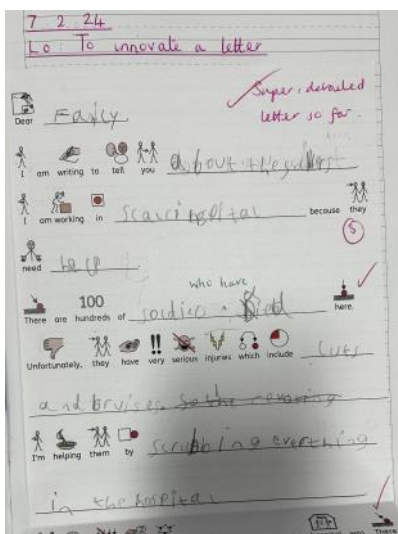 7 2 24
Lo: To innovate a letter
Super, detailed
letter so far.
Dear Family
I am writing to tell you about the
I am working in scaari hospital because they
S
need help
who have
There are hundreds of soldies died here.
100
Unfortunately, they have very serious injuries which include cuts
and bruises. So the
I'm helping them by scrubbing everthing
in the hospital
There